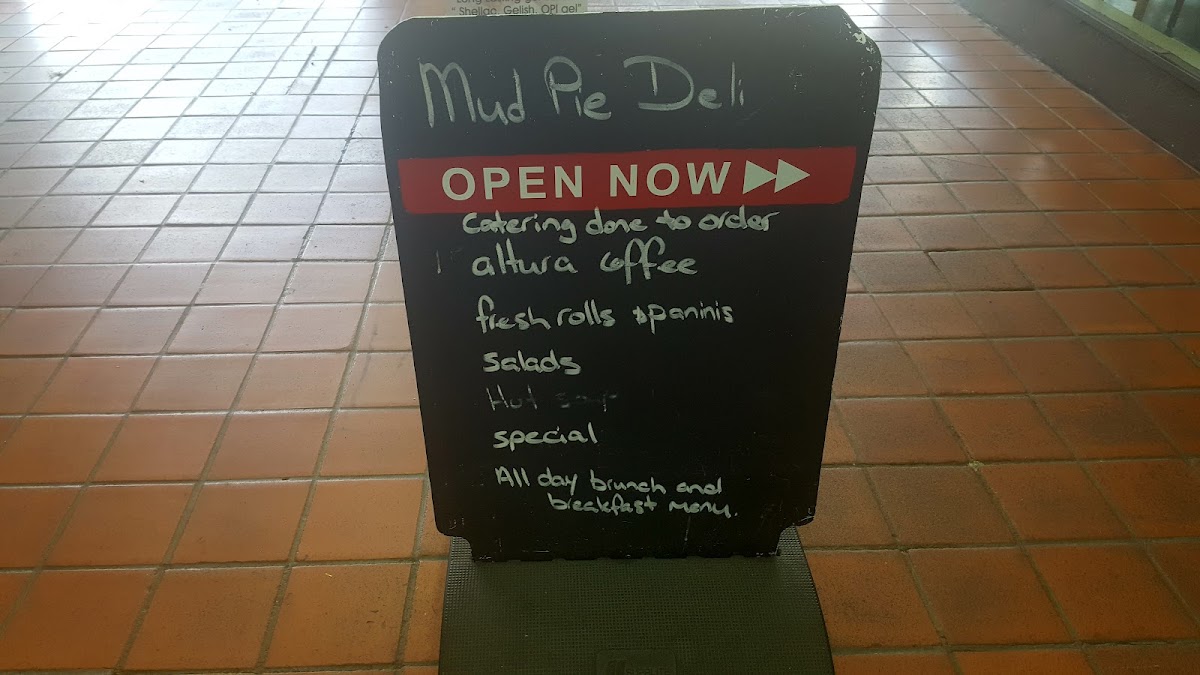 " Shellac, Gelish, OPI gel"
Mud Pie Deli
OPEN NOW
Catering done to order
altura coffee
fresh rolls & paninis
Salads
Hot soup
special
All day brunch and
breakfast menu.